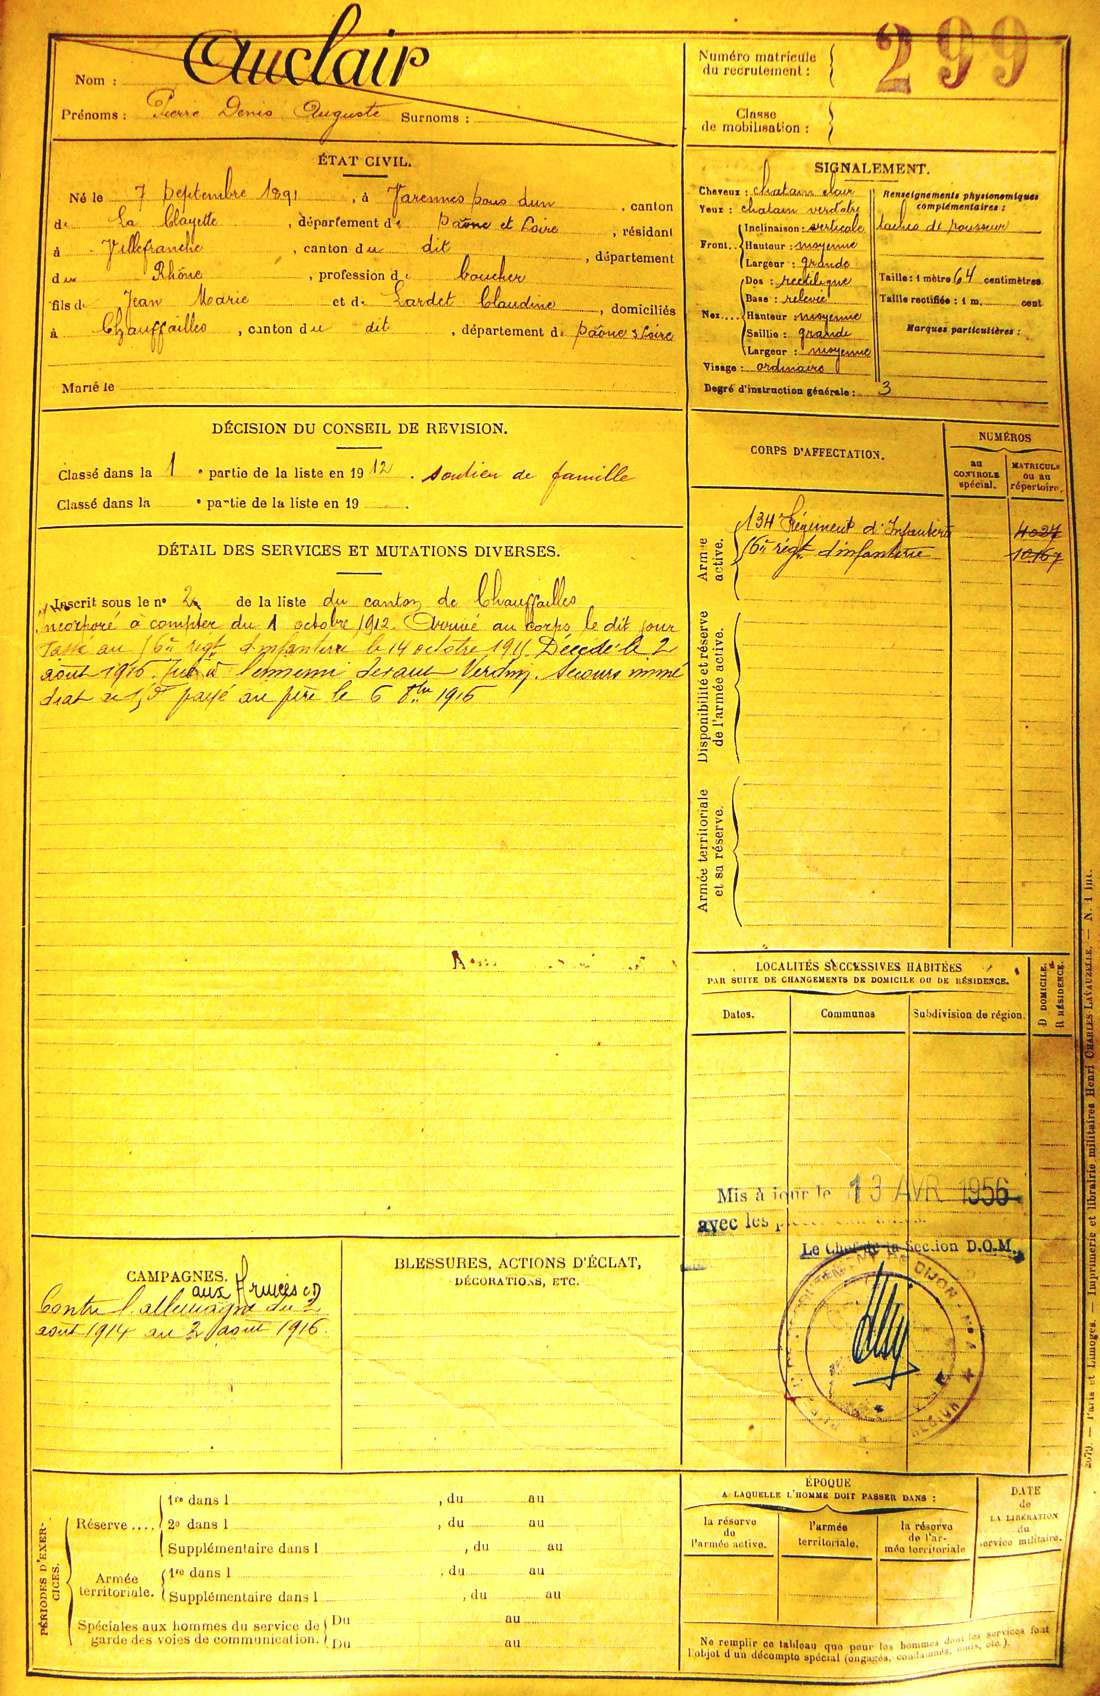 Nom : Auclair
Prénoms : Pierre Denis Auguste Surnoms :
Numéro matricule
du recrutement : 299
Classe
de mobilisation :
ÉTAT CIVIL.
Né le 7 Septembre 1891, à Varennes sous dun, canton
de La Clayette, département de Saône et Loire, résidant
à Villefranche, canton du dit, département
du Rhône, profession de boucher
fils de Jean Marie et de Lardet Claudine, domiciliés
à Chauffailles, canton du dit, département de Saône & Loire
Marié le
SIGNALEMENT.
Cheveux : chatain clair
Yeux : chatain verdatre
Front. Inclinaison : verticale
Hauteur : moyenne
Largeur : grande
Nez. Dos : rectiligne
Base : relevée
Hauteur moyenne
Saillie : grande
Largeur : moyenne
Visage : ordinaire
Renseignements physionomiques
complémentaires :
taches de rousseur
Taille : 1 mètre 64 centimètres
Taille rectifiée : 1 m. cent
Marques particulières :
Degré d'instruction générale : 3
DÉCISION DU CONSEIL DE REVISION.
Classé dans la 1e partie de la liste en 1912. soutien de famille
Classé dans la e partie de la liste en 19 .
DÉTAIL DES SERVICES ET MUTATIONS DIVERSES.
Inscrit sous le no 2 de la liste du canton de Chauffailles
Incorporé à compter du 1 octobre 1912. Arrivé au corps le dit jour
Passé au 16e régt d'infanterie le 14 octobre 191 Décédé le 2
août 1916. Tué à l'ennemi devant Verdun. Secours immé
diat de payé au père le 6 8bre 1916
CORPS D'AFFECTATION.
NUMÉROS
au
CONTROLE
spécial.
MATRICULE
ou au
répertoire.
Armée
active.
134e Régiment d'Infanterie 4027
16e régt d'infanterie 10167
Disponibilité et réserve
de l'armée active.
Armée territoriale
et sa réserve.
LOCALITÉS SUCCESSIVES HABITÉES
PAR SUITE DE CHANGEMENTS DE DOMICILE OU DE RÉSIDENCE.
Dates.
Communes
Subdivision de région.
D DOMICILE.
R RÉSIDENCE.
Mis à jour le 13 AVR 1956
avec les
Le Chef de la Section D.O.M.
CAMPAGNES.
aux Armées CD
Contre l'allemagne du 2
août 1914 au 2 août 1916.
BLESSURES, ACTIONS D'ÉCLAT,
DÉCORATIONS, ETC.
PÉRIODES D'EXER-
CICES.
Réserve .... 1re dans l , du au
2e dans l , du au
Supplémentaire dans l , du au
Armée
territoriale. 1re dans l , du au
Supplémentaire dans l , du au
Spéciales aux hommes du service de
garde des voies de communication. Du au
Du au
ÉPOQUE
A LAQUELLE L'HOMME DOIT PASSER DANS :
la réserve
de
l'armée active.
l'armée
territoriale.
la réserve
de l'ar-
mée territoriale
DATE
de
LA LIBÉRATION
du
service militaire.
Ne remplir ce tableau que pour les hommes dont les services font
l'objet d'un décompte spécial (engagés, condamnés, omis, etc.).
Paris et Limoges. — Imprimerie et librairie militaires Henri CHARLES-LAVAUZELLE. — N. 1 Int.